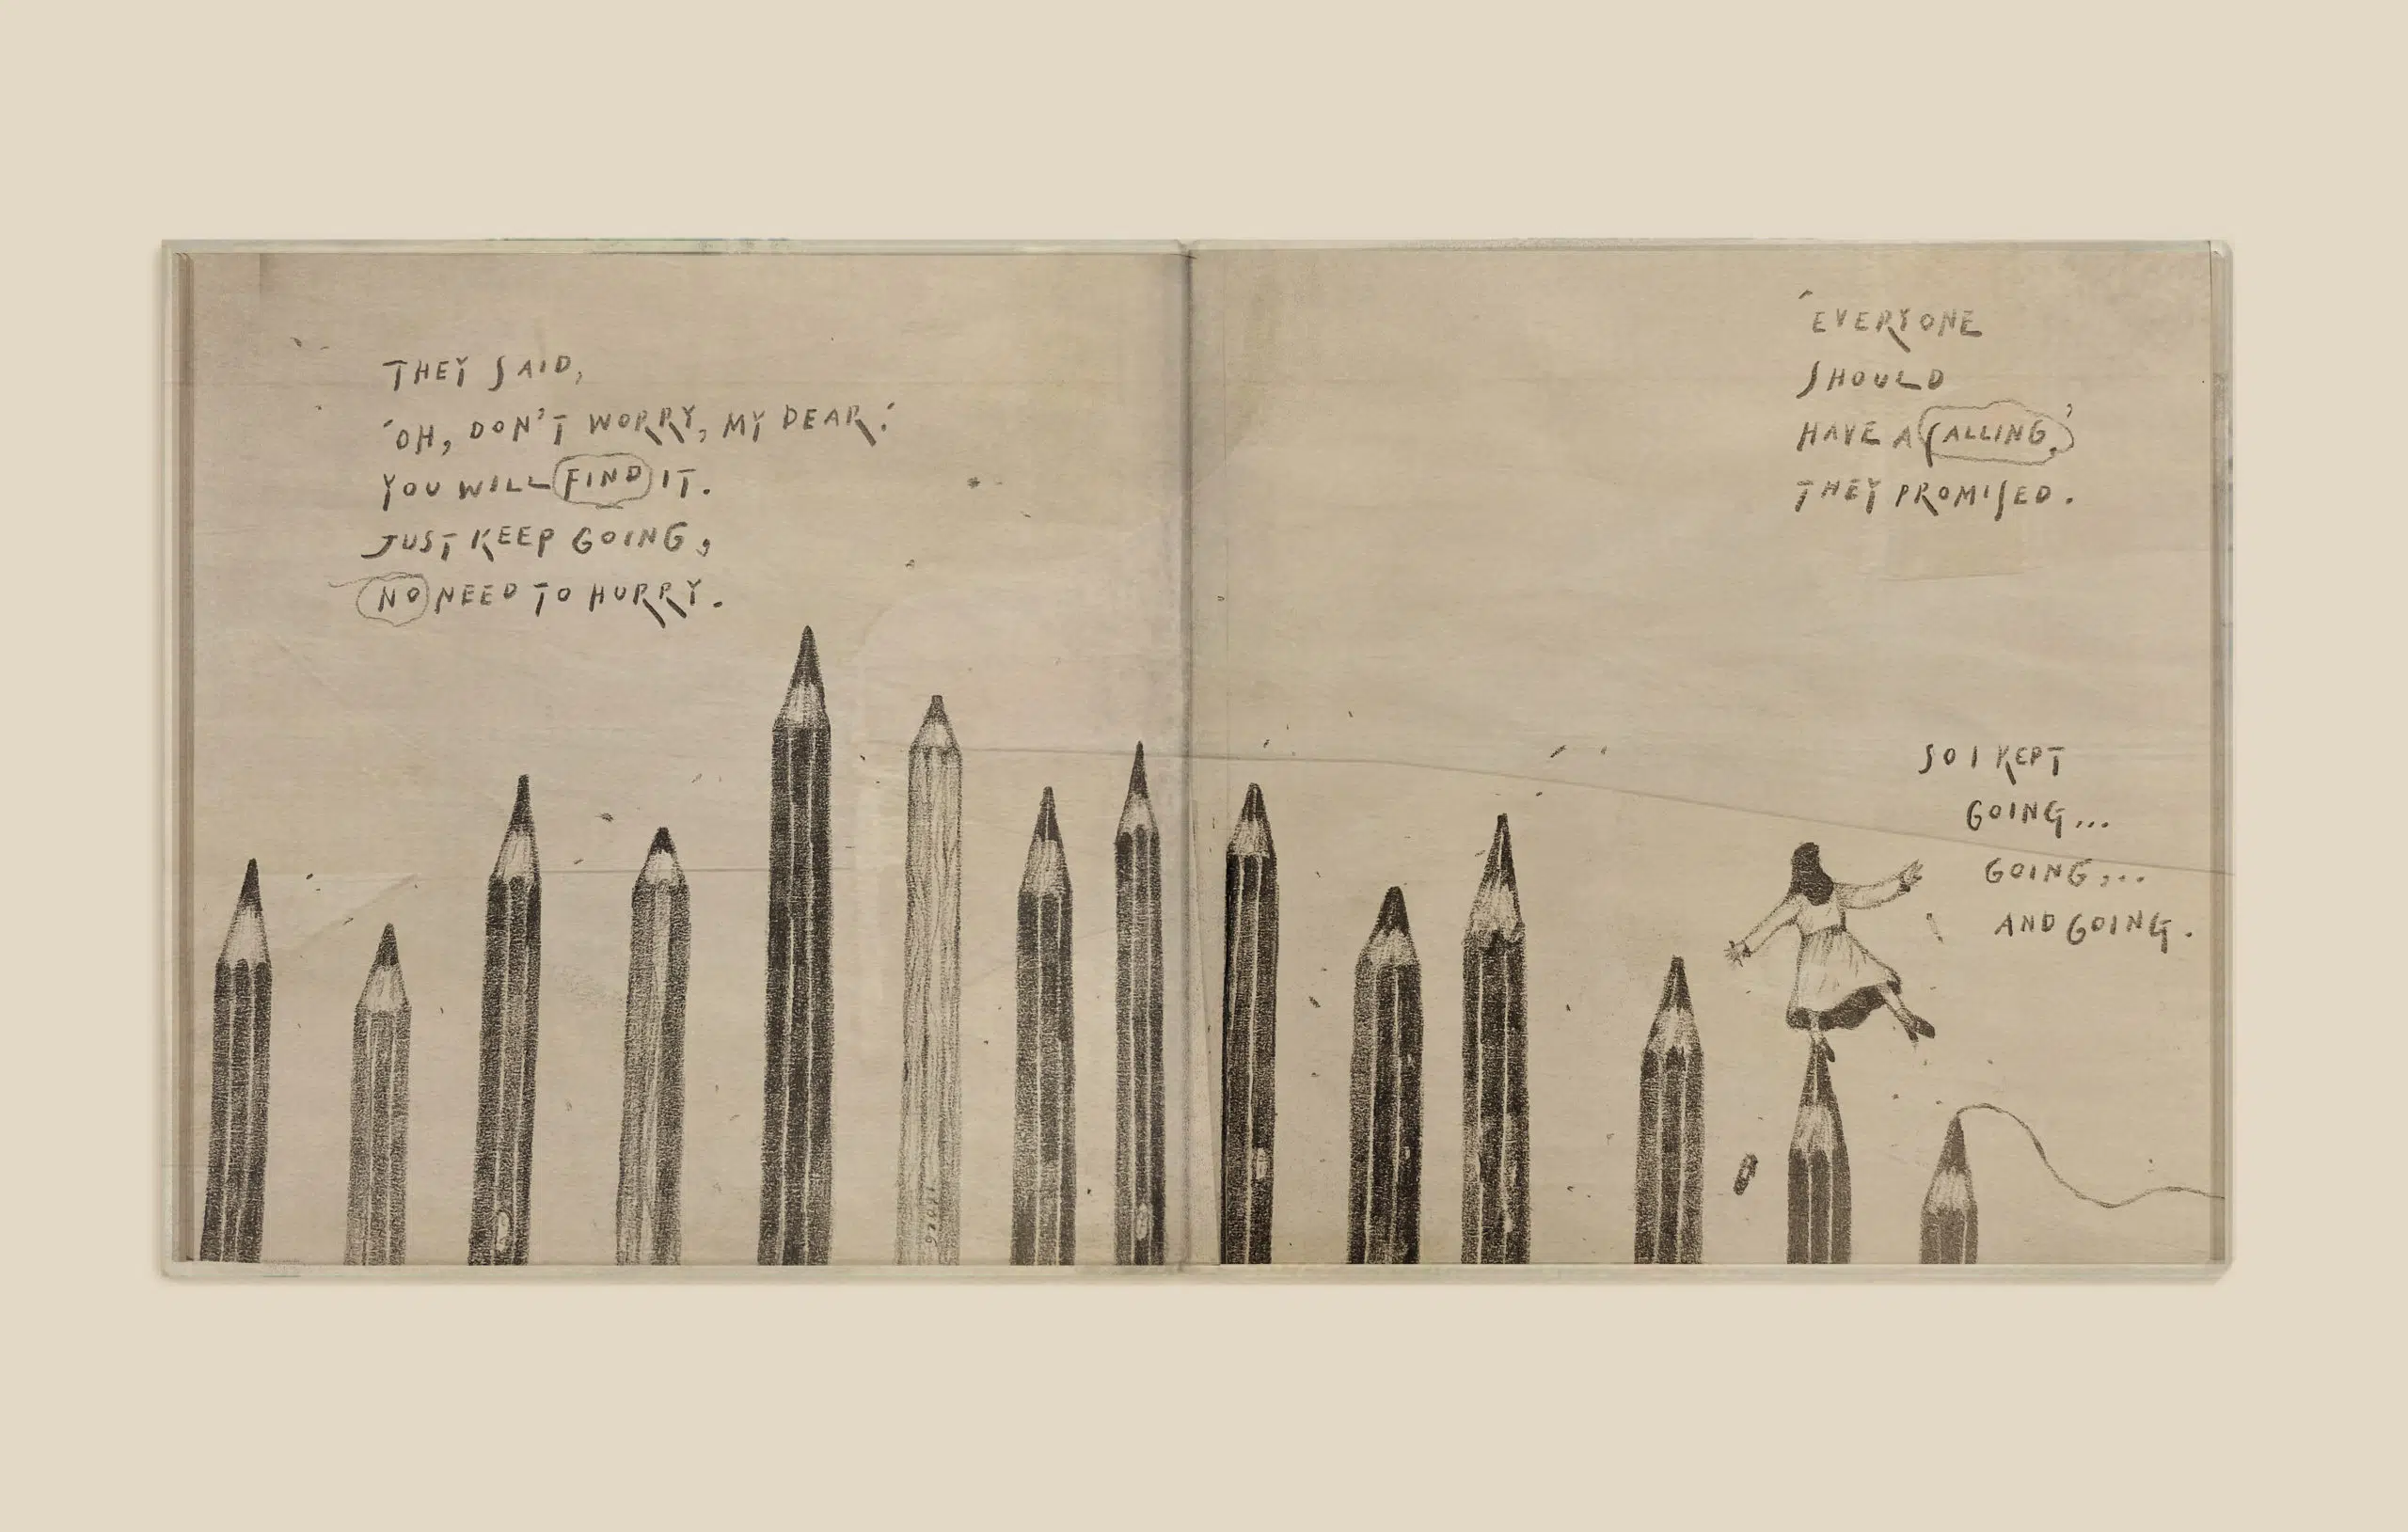 THEY SAID,
'OH, DON'T WORRY, MY DEAR.'
YOU WILL FIND IT.
JUST KEEP GOING,
NO NEED TO HURRY.
'EVERYONE
SHOULD
HAVE A CALLING,'
THEY PROMISED.
SO I KEPT
GOING...
GOING...
AND GOING.